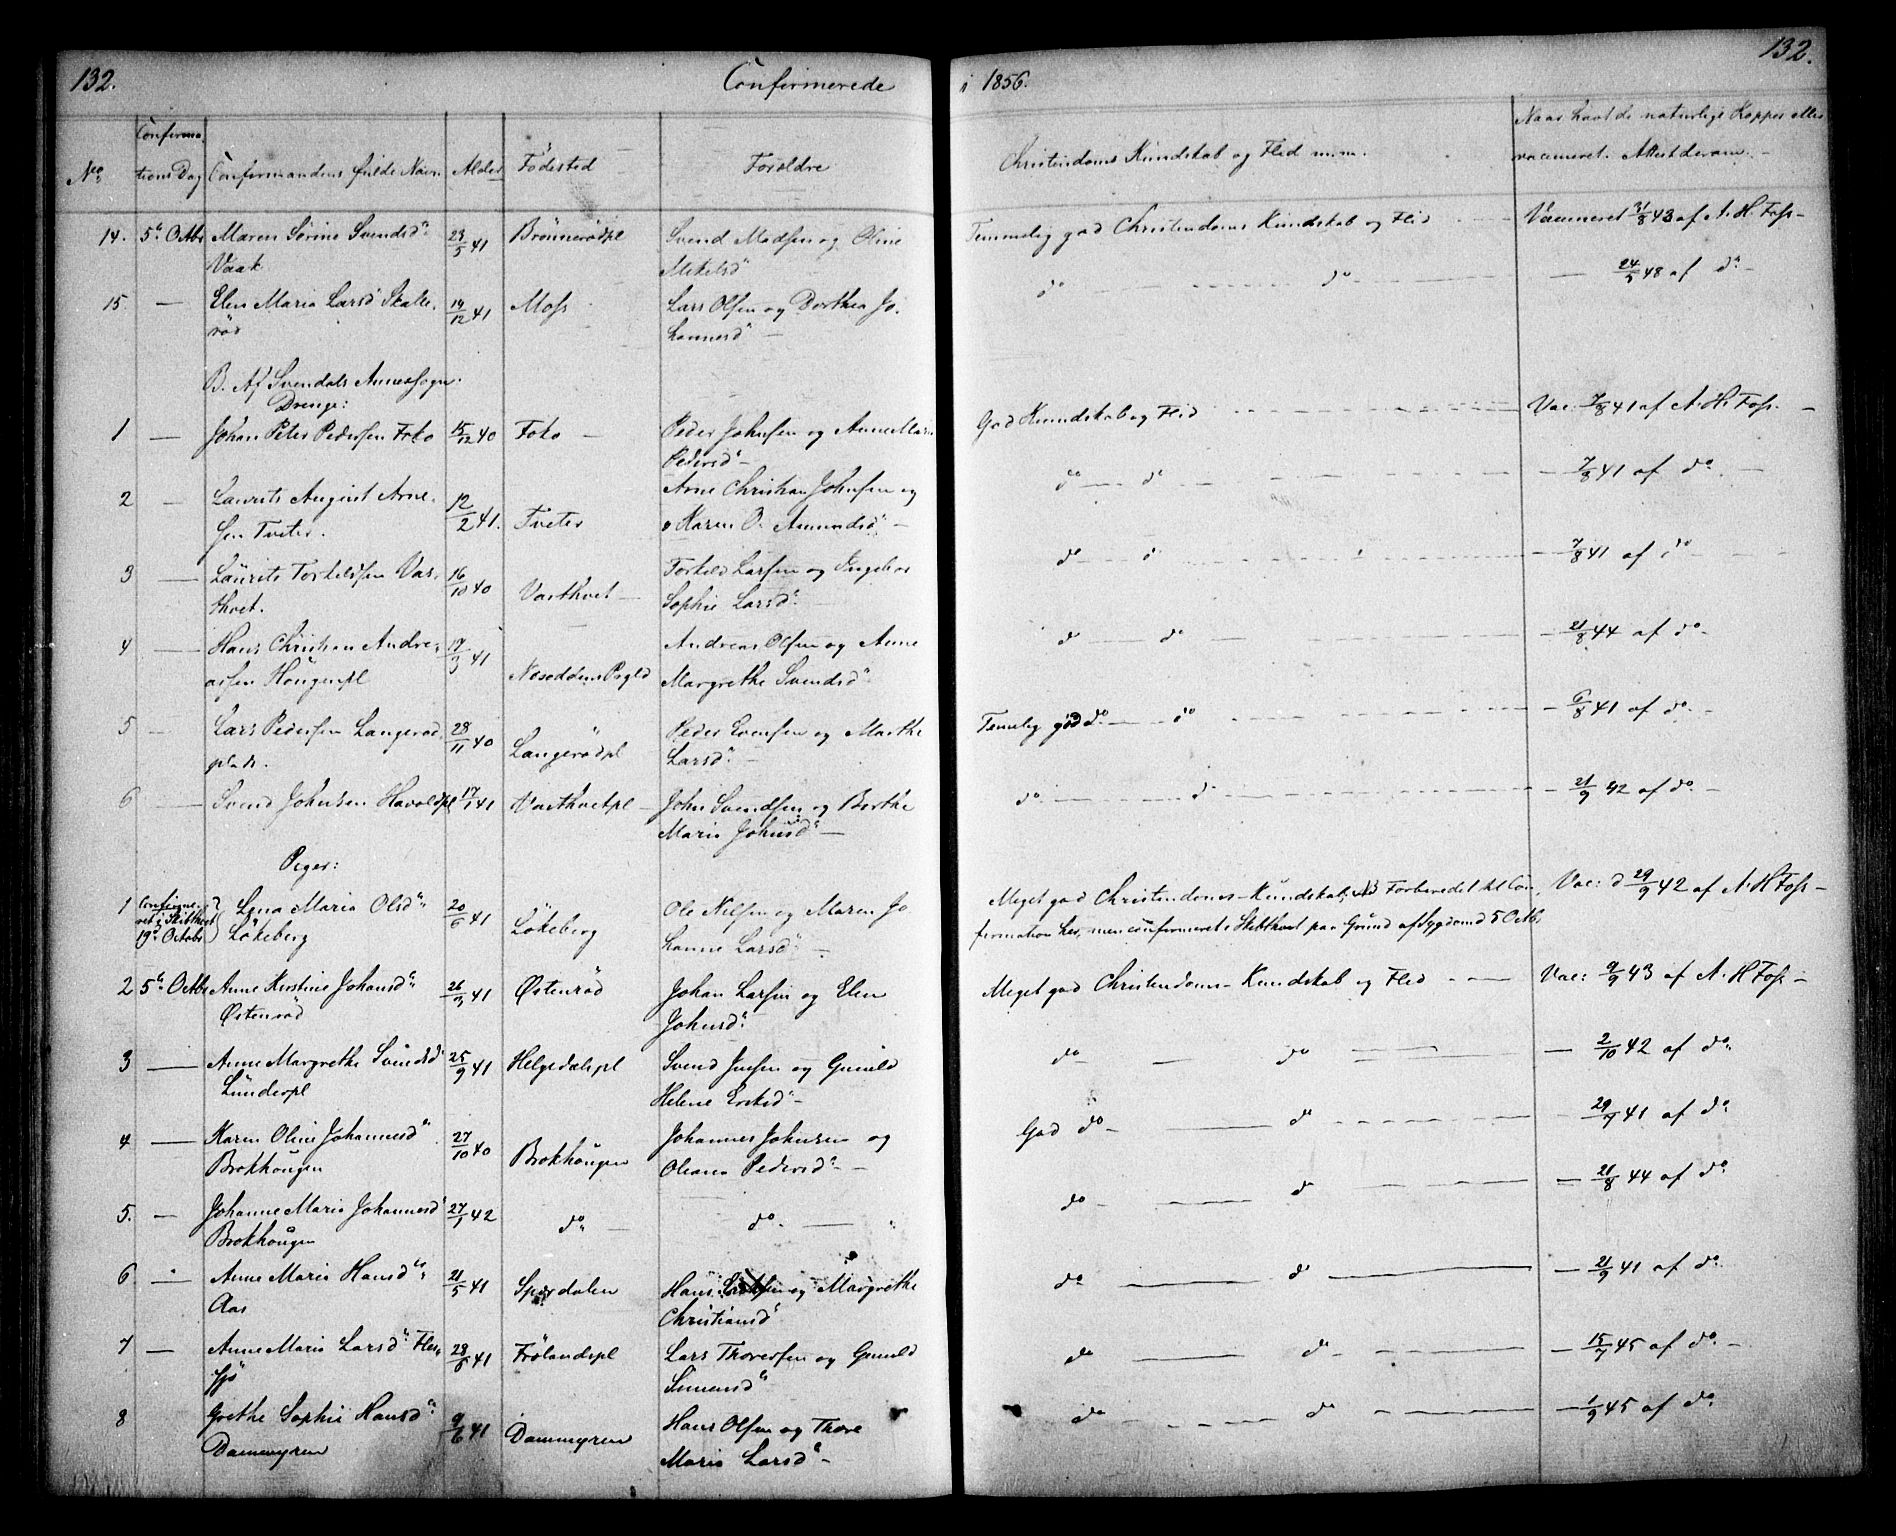 132.
Confirmerede
i 1856.
132.
No
Confirma-
tions Dag
Confirmandens fulde Navn
Alder
Födested
Foreldre
Christendoms Kundskab og Flid m.m.
Naar havt de naturlige Kopper eller
vaccineret. Attest derom.
14. 5te Octbr Maren Sörine Svendsd. 23/5 41 Brönnerödpl Svend Madsen og Oline Temmelig god Christendoms Kundskab og Flid Vaccineret 31/8 43 af A. H. Foss
Vaak Mikelsd
15. — Elen Maria Larsd Skalle- 19/12 41 Moss Lars Olsen og Dorthea Jo- do do — 24/5 48 af do
röd hannesd
B. Af Svendals Annexsogn.
Drenge:
1 — Johan Peter Pedersen Foko 15/12 40 Foko Peder Johnsen og Anne Marie God Kundskab og Flid Vac: 7/8 41 af A. H. Foss
Pedersd
2 — Laurits August Arne- 12/2 41. Tveter Arne Christian Johnsen og do do — 7/8 41 af do
sen Tveter. Karen O. Amundsd
3 — Laurits Torkildsen Var- 16/10 40 Varthvet Torkild Larsen og Ingebor do do — 7/8 41 af do
thvet. Sophie Larsd
4 — Hans Christian Andre- 17/3 41 Nesoddens Pgld Andreas Olsen og Anne do do — 21/8 44 af do
assen Haugenpl Margrethe Svendsd
5 — Lars Pedersen Langeröd 28/11 40 Langerödpl Peder Evensen og Marthe Temlig god do do — 6/8 41 af do
plads. Larsd
6 — Svend Johnsen Havoldpl 17/1 41 Varthvetpl John Svendsen og Berthe do do — 21/9 42 af do
Maria Johnsd
Piger:
1 Confirme- Lena Maria Olsd 20/6 41 Lökeberg Ole Nilsen og Maren Jo Meget god Christendoms-Kundskab; Forberedet til Con- Vac: d 29/9 42 af A. H. Foss
ret i Skibthvet Lökeberg hanne Larsd firmation her, men confirmeret i Skibthvet paa Grund af Sygdom d 5 Octb.
19de Octobr
2 5te Octbr Anne Kirstine Johansd 26/3 41 Østenröd Johan Larsen og Elen Meget god Christendoms-Kundskab og Flid Vac: 9/9 43 af A. H. Foss
Østenröd Johnsd
3 — Anne Margrethe Svendsd 25/9 41 Helgedalspl Svend Jensen og Gunild do do — 2/10 42 af do
Lunderpl Helene Eriksd
4 — Karen Oline Johannesd 27/10 40 Brokhaugen Johannes Johnsen og God do do — 29/7 41 af do
Brokhaugen Oleana Pedersd
5. — Johanne Maria Johannesd 27/1 42 do do do do — 21/8 44 af do
Brokhaugen
6 — Anne Maria Hansd 21/5 41 Spærdalen Hans og Margrethe do do — 21/9 41 af do
Aas Christiansd
7 — Anne Maria Larsd Fles- 28/6 41 Frölandspl Lars Thoresen og Gunild do do — 15/7 45 af do
sjö Simensd
8 Grethe Sophie Hansd 9/6 41 Dammyren Hans Olsen og Thore do do — 1/9 45 af do
Dammyren Maria Larsd